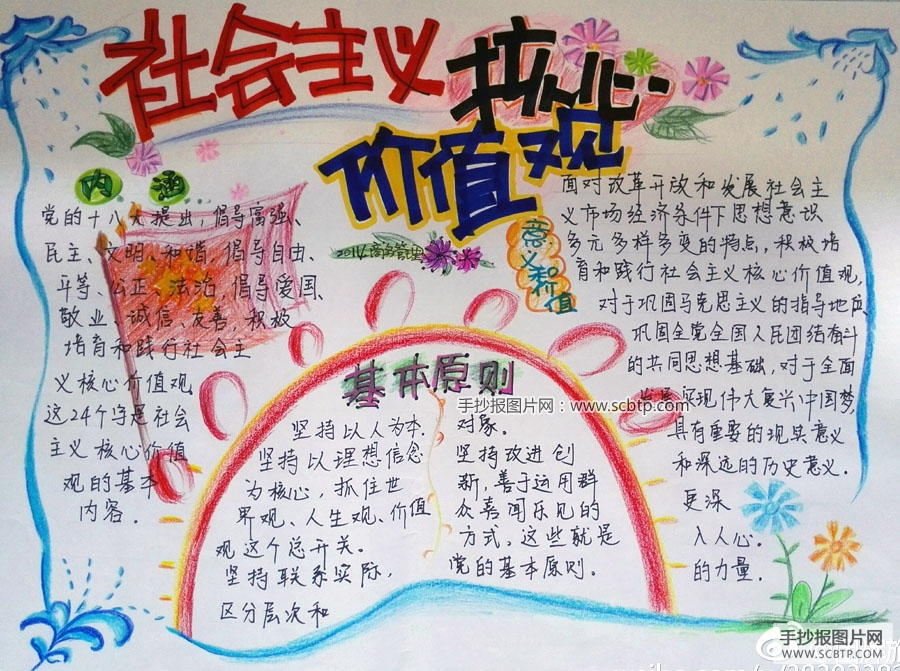 社会主义核心
价值观
内涵
党的十八大提出，倡导富强、
民主、文明、和谐，倡导自由、
平等、公正、法治，倡导爱国、
敬业、诚信、友善，积极
培育和践行社会主
义核心价值观
这24个字是社会
主义核心价值
观的基本
内容.
意义和价值
面对改革开放和发展社会主
义市场经济条件下思想意识
多元多样多变的特点，积极培
育和践行社会主义核心价值观，
对于巩固马克思主义的指导地位、
巩固全党全国人民团结奋斗
的共同思想基础，对于全面
发展，实现伟大复兴中国梦，
具有重要的现实意义
和深远的历史意义.
更深
入人心.
的力量.
基本原则
坚持以人为本
坚持以理想信念
为核心，抓住世
界观、人生观、价值
观这个总开关。
坚持联系实际，
区分层次和
对象。
坚持改进创
新，善于运用群
众喜闻乐见的
方式，这些就是
党的基本原则。
手抄报图片网：www.scbtp.com
手抄报图片网
WWW.SCBTP.COM